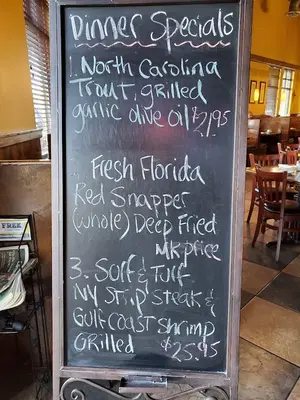 Dinner Specials
1. North Carolina
Trout, grilled
garlic olive oil $21.95
Fresh Florida
Red Snapper
(whole) Deep Fried
MK price
3. Surf & Turf
NY Strip Steak &
Gulf coast shrimp
Grilled $25.95
FREE